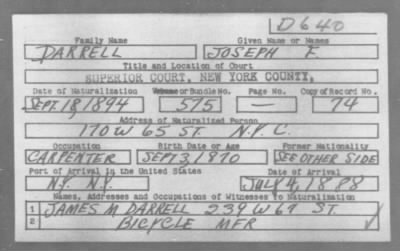 D640
Family Name Given Name or Names
DARRELL JOSEPH F.
Title and Location of Court
SUPERIOR COURT, NEW YORK COUNTY,
Date of Naturalization Volume or Bundle No. Page No. Copy of Record No.
SEPT. 18, 1894 575 — 74
Address of Naturalized Person
170 W 65 ST. N.Y.C.
Occupation Birth Date or Age Former Nationality
CARPENTER SEPT 3, 1870 SEE OTHER SIDE
Port of Arrival in the United States Date of Arrival
N.Y. N.Y. JULY 4, 1888
Names, Addresses and Occupations of Witnesses To Naturalization
1 JAMES M DARRELL 239 W 67 ST.
2 BICYCLE MFR